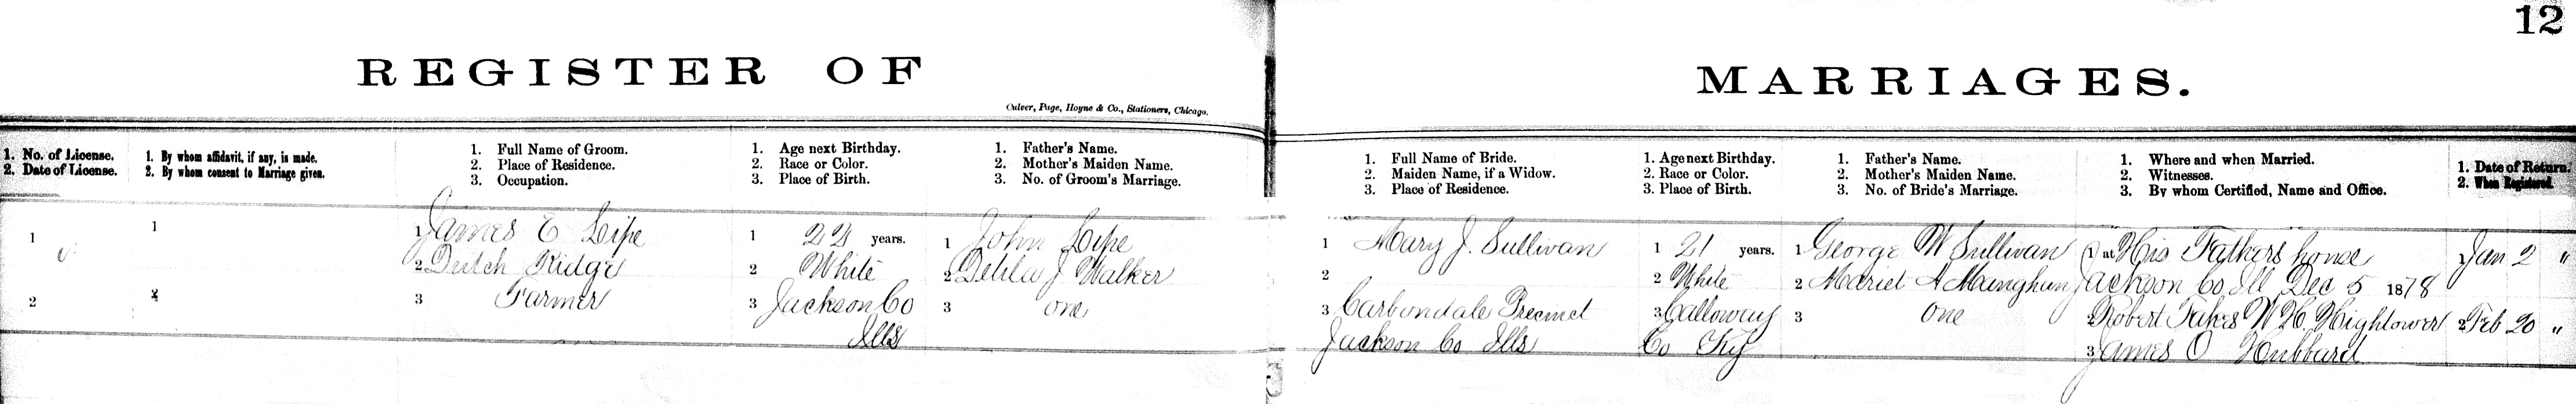 12
REGISTER OF MARRIAGES.
Culver, Page, Hoyne & Co., Stationers, Chicago.
1. No. of License.
2. Date of License.
1. By whom affidavit, if any, is made.
2. By whom consent to Marriage given.
1. Full Name of Groom.
2. Place of Residence.
3. Occupation.
1. Age next Birthday.
2. Race or Color.
3. Place of Birth.
1. Father's Name.
2. Mother's Maiden Name.
3. No. of Groom's Marriage.
1. Full Name of Bride.
2. Maiden Name, if a Widow.
3. Place of Residence.
1. Age next Birthday.
2. Race or Color.
3. Place of Birth.
1. Father's Name.
2. Mother's Maiden Name.
3. No. of Bride's Marriage.
1. Where and when Married.
2. Witnesses.
3. By whom Certified, Name and Office.
1. Date of Return.
2. When Registered.
1
2
1
2
1 James E Lipe
2 Dutch Ridge
3 Farmer
1 22 years.
2 White
3 Jackson Co
Ills
1 John Lipe
2 Delila J Walker
3 one
1 Mary J. Sullivan
2
3 Carbondale Precinct
Jackson Co Ills
1 21 years.
2 White
3 Calloway
Co Ky
1 George W Sullivan
2 Mariet A
3 one
1 at His Fathers house
Jackson Co Ill Dec 5 1878
2 Robert Fakes W H Hightower
3 James O Hubbard
1 Jan 2 "
2 Feb 20 "